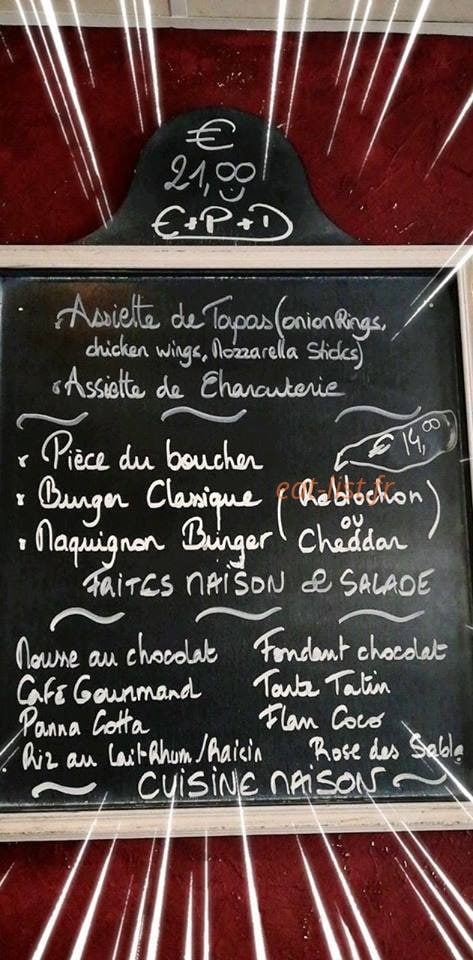 €
21,00
E+P+D
Assiette de Tapas (onion Rings,
chicken wings, Mozzarella Sticks)
Assiette de Charcuterie
€ 14,00
Pièce du boucher
Burger Classique (Reblochon
ou
Maquignon Burger Cheddar)
eat-list.fr
FAITES MAISON & SALADE
Mousse au chocolat Fondant chocolat
Café Gourmand Tarte Tatin
Panna Cotta Flan Coco
Riz au Lait Rhum/Raisin Rose des Sable
CUISINE MAISON